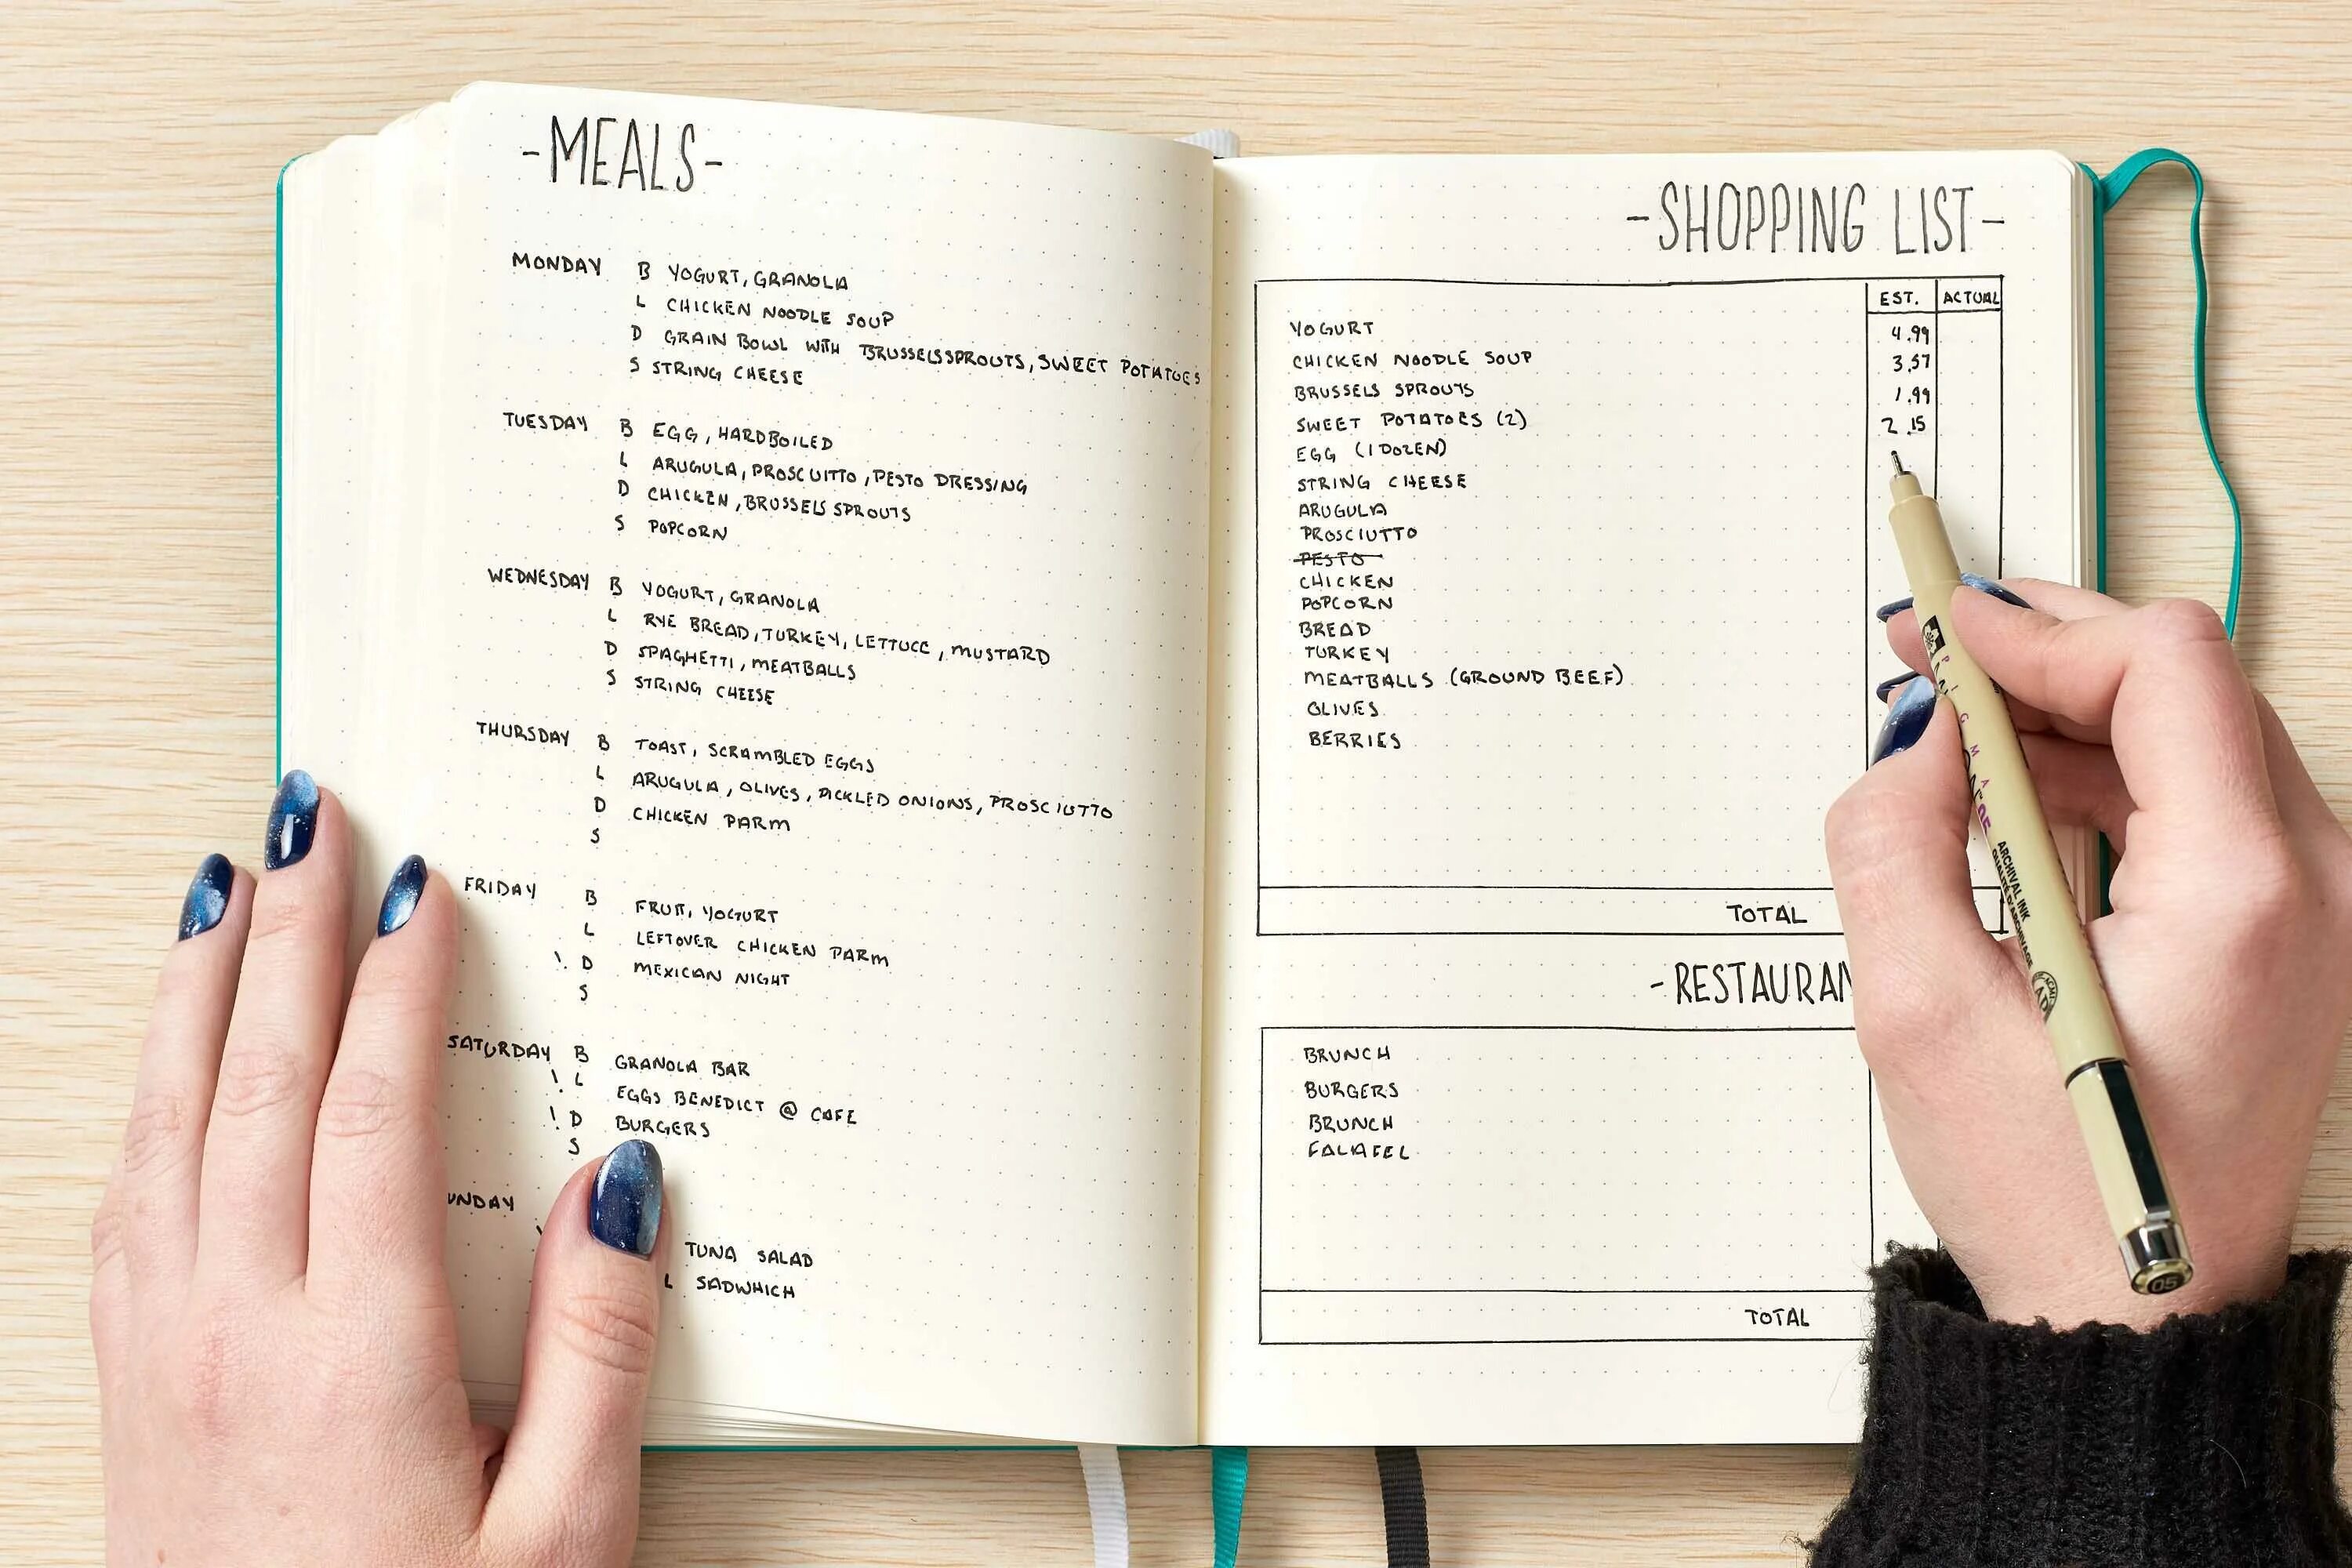 -MEALS-
MONDAY B YOGURT, GRANOLA
L CHICKEN NOODLE SOUP
D GRAIN BOWL WITH BRUSSELSSPROUTS, SWEET POTATOES
S STRING CHEESE
TUESDAY B EGG, HARDBOILED
L ARUGULA, PROSCUITTO, PESTO DRESSING
D CHICKEN, BRUSSELS SPROUTS
S POPCORN
WEDNESDAY B YOGURT, GRANOLA
L RYE BREAD, TURKEY, LETTUCE, MUSTARD
D SPAGHETTI, MEATBALLS
S STRING CHEESE
THURSDAY B TOAST, SCRAMBLED EGGS
L ARUGULA, OLIVES, PICKLED ONIONS, PROSCIUTTO
D CHICKEN PARM
S
FRIDAY B FRUIT, YOGURT
L LEFTOVER CHICKEN PARM
! D MEXICAN NIGHT
S
SATURDAY B GRANOLA BAR
! L EGGS BENEDICT @ CAFE
! D BURGERS
S
UNDAY
TUNA SALAD
L SADWHICH
-SHOPPING LIST-
EST. ACTUAL
YOGURT 4.99
CHICKEN NOODLE SOUP 3.57
BRUSSELS SPROUTS 1.99
SWEET POTATOES (2) 2.15
EGG (1 DOZEN)
STRING CHEESE
ARUGULA
PROSCIUTTO
PESTO
CHICKEN
POPCORN
BREAD
TURKEY
MEATBALLS (GROUND BEEF)
OLIVES
BERRIES
TOTAL
-RESTAURAN
BRUNCH
BURGERS
BRUNCH
FALAFEL
TOTAL
PIGMA
ARCHIVAL INK
05